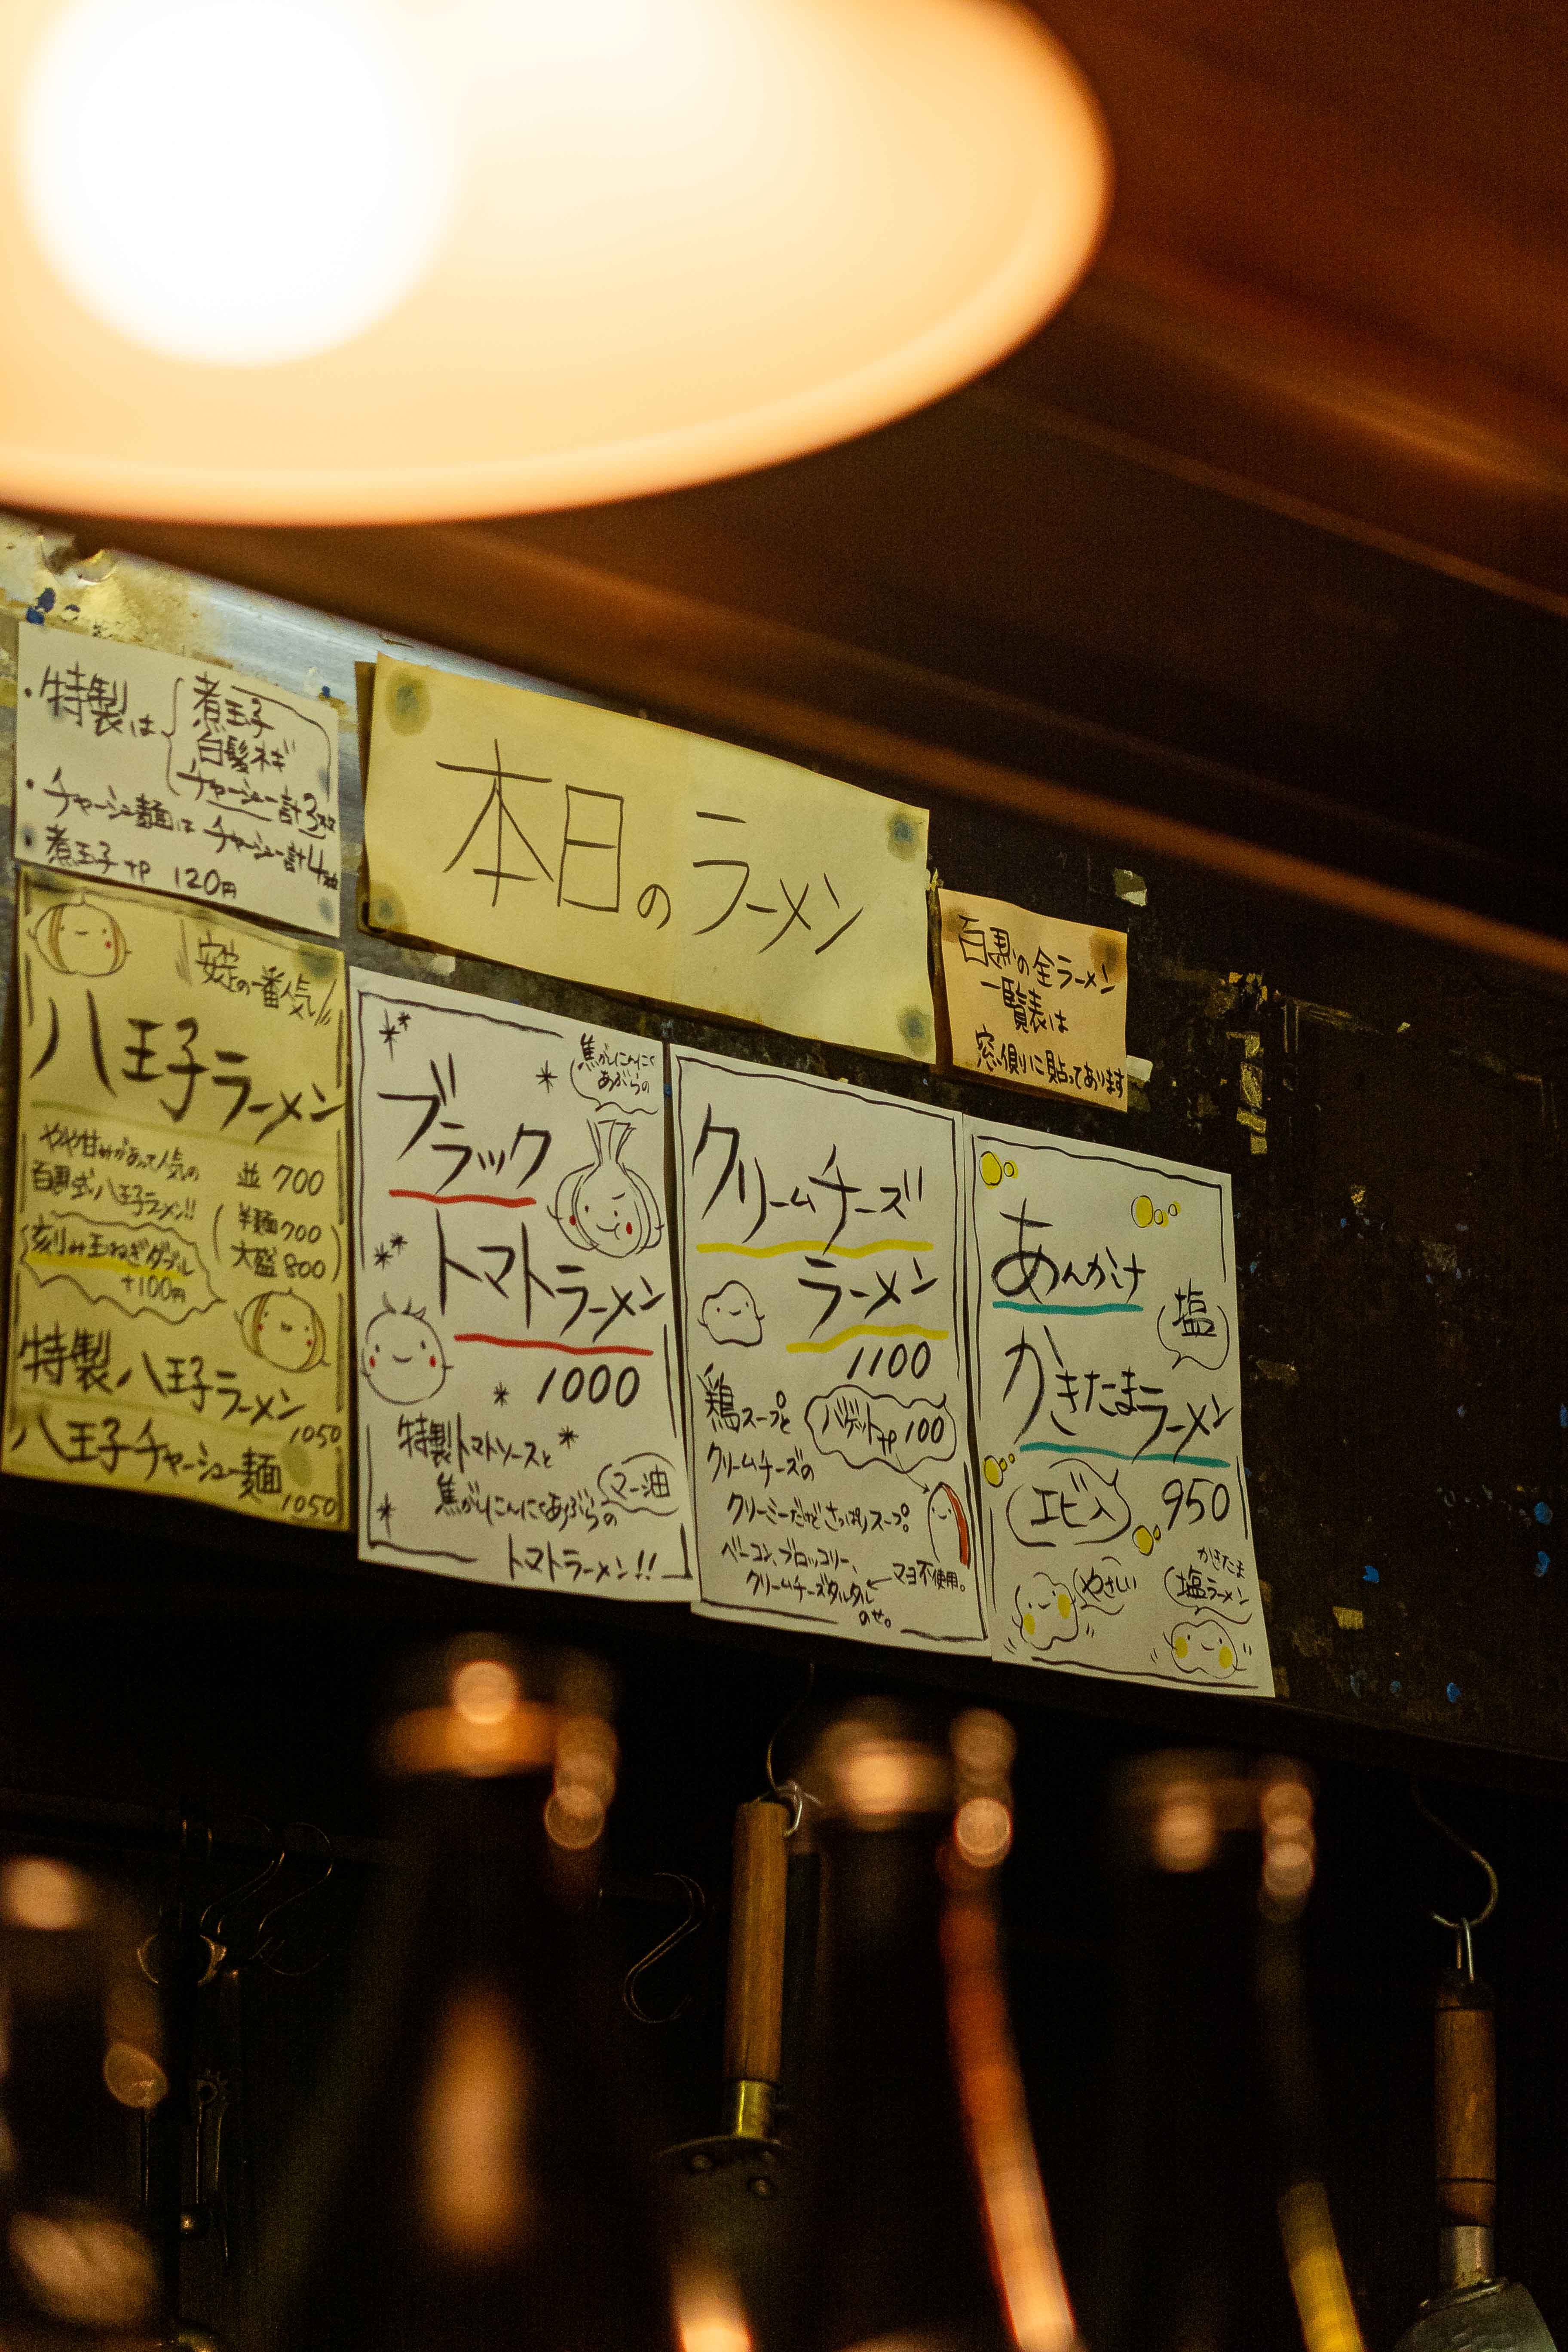 ・特製は
煮玉子
白髪ネギ
チャーシュー計3枚
・チャーシュー麺はチャーシュー計4枚
・煮玉子 ++P 120円
本日のラーメン
の全ラーメン
一覧表は
窓側に貼ってあります
安定の一番人気
八王子ラーメン
やや甘めがあって人気の
式八王子ラーメン!!
並 700
半麺700
大盛 800
刻み玉ねぎダブル
+100円
特製八王子ラーメン
1050
八王子チャーシュー麺
1050
焦がしにんにく
あぶらの
ブラック
トマトラーメン
1000
特製トマトソースと
焦がしにんにくあぶらの
マー油
トマトラーメン!!
クリームチーズ
ラーメン
1100
鶏スープと
バゲット 100
クリームチーズの
クリーミーだけどさっぱりスープ。
ベーコン、ブロッコリー、
クリームチーズタルタル
のせ。
マヨ不使用。
あんかけ
塩
かきたまラーメン
エビ入
950
やさしい
かきたま
塩ラーメン